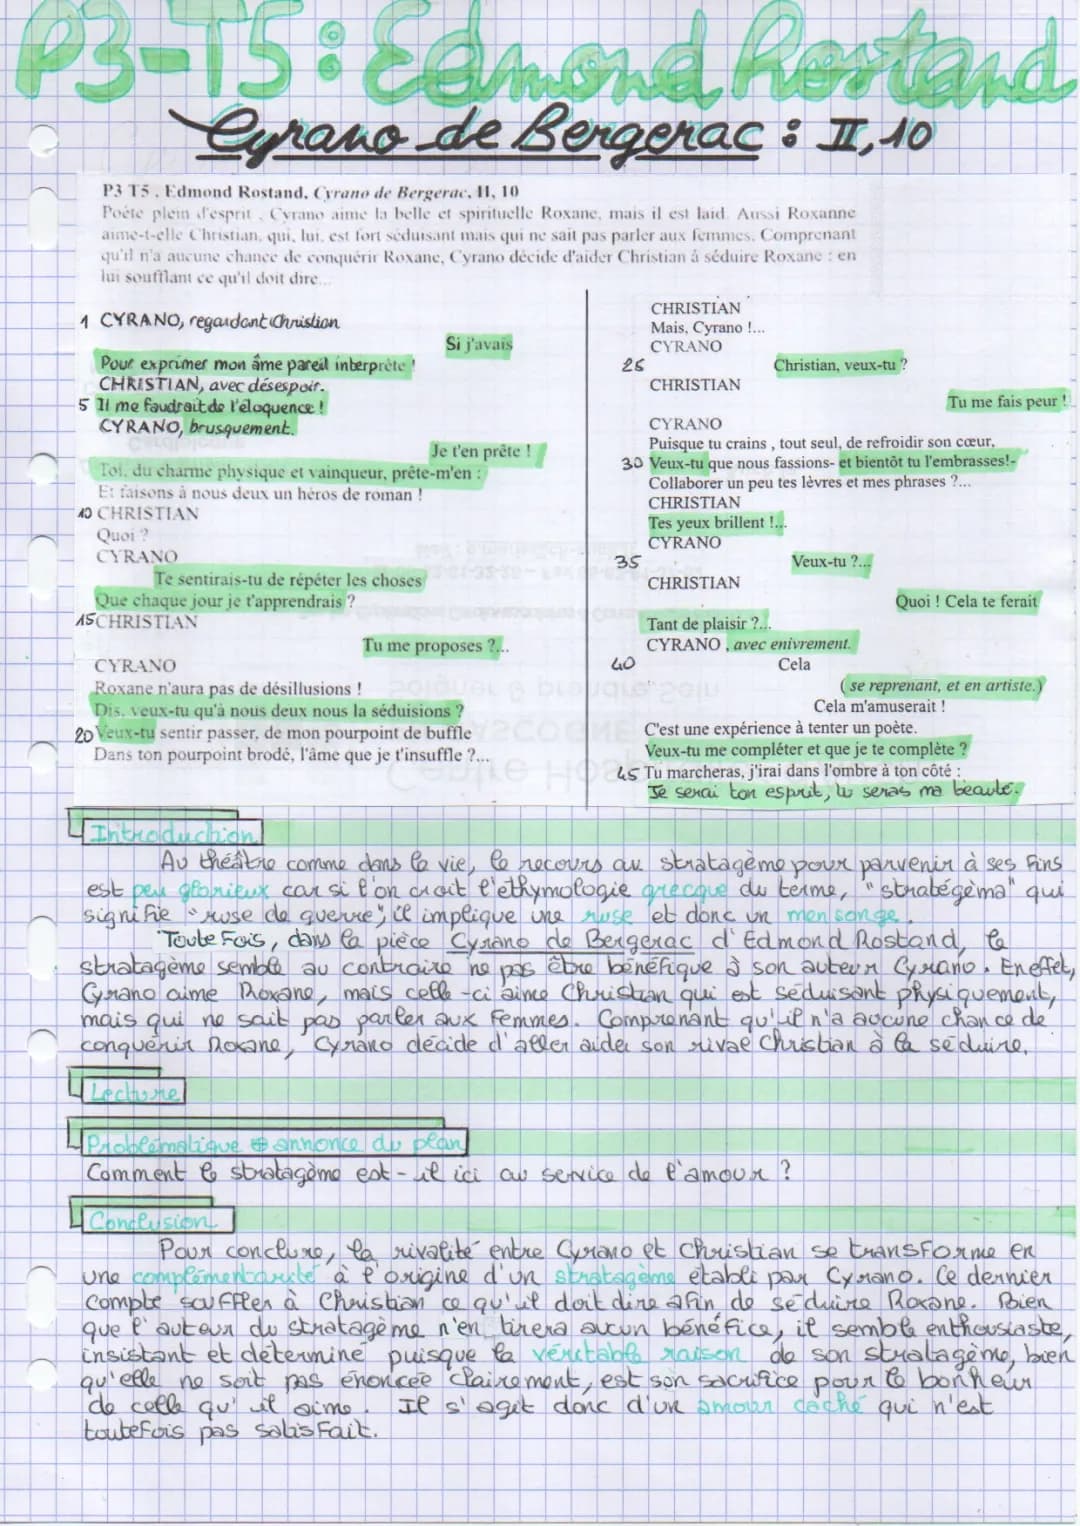 P3-T5 : Edmond Rostand
Cyrano de Bergerac : II, 10
P3 T5 . Edmond Rostand, Cyrano de Bergerac, II, 10
Poète plein d'esprit , Cyrano aime la belle et spirituelle Roxane, mais il est laid. Aussi Roxanne
aime-t-elle Christian, qui, lui, est fort séduisant mais qui ne sait pas parler aux femmes. Comprenant
qu'il n'a aucune chance de conquérir Roxane, Cyrano décide d'aider Christian à séduire Roxane : en
lui soufflant ce qu'il doit dire...
1 CYRANO, regardant Christian
Si j'avais
Pour exprimer mon âme pareil interprète !
CHRISTIAN, avec désespoir.
5 Il me faudrait de l'éloquence !
CYRANO, brusquement.
Je t'en prête !
Toi, du charme physique et vainqueur, prête-m'en :
Et faisons à nous deux un héros de roman !
10 CHRISTIAN
Quoi ?
CYRANO
Te sentirais-tu de répéter les choses
Que chaque jour je t'apprendrais ?
15 CHRISTIAN
Tu me proposes ?...
CYRANO
Roxane n'aura pas de désillusions !
Dis, veux-tu qu'à nous deux nous la séduisions ?
20 Veux-tu sentir passer, de mon pourpoint de buffle
Dans ton pourpoint brodé, l'âme que je t'insuffle ?...
CHRISTIAN
Mais, Cyrano !...
CYRANO
25 Christian, veux-tu ?
CHRISTIAN
Tu me fais peur !
CYRANO
Puisque tu crains , tout seul, de refroidir son cœur,
30 Veux-tu que nous fassions- et bientôt tu l'embrasses!-
Collaborer un peu tes lèvres et mes phrases ?...
CHRISTIAN
Tes yeux brillent !...
CYRANO
35 Veux-tu ?...
CHRISTIAN
Quoi ! Cela te ferait
Tant de plaisir ?...
CYRANO , avec enivrement.
40 Cela
( se reprenant, et en artiste.)
Cela m'amuserait !
C'est une expérience à tenter un poète.
Veux-tu me compléter et que je te complète ?
45 Tu marcheras, j'irai dans l'ombre à ton côté :
Je serai ton esprit, tu seras ma beauté.
Introduction
Au théâtre comme dans la vie, le recours au stratagème pour parvenir à ses fins
est peu glorieux car si l'on croit l'éthymologie grecque du terme, "stratégèma" qui
signifie "ruse de guerre", il implique une ruse et donc un mensonge.
Toutefois, dans la pièce Cyrano de Bergerac d'Edmond Rostand, le
stratagème semble au contraire ne pas être bénéfique à son auteur Cyrano. En effet,
Cyrano aime Roxane, mais celle-ci aime Christian qui est séduisant physiquement,
mais qui ne sait pas parler aux femmes. Comprenant qu'il n'a aucune chance de
conquérir Roxane, Cyrano décide d'aller aider son rival Christian à la séduire.
Lecture
Problématique ⊕ annonce du plan
Comment le stratagème est-il ici au service de l'amour ?
Conclusion
Pour conclure, la rivalité entre Cyrano et Christian se transforme en
une complémentarité à l'origine d'un stratagème établi par Cyrano. Ce dernier
compte souffler à Christian ce qu'il doit dire afin de séduire Roxane. Bien
que l'auteur du stratagème n'en tirera aucun bénéfice, il semble enthousiaste,
insistant et déterminé puisque la véritable raison de son stratagème, bien
qu'elle ne soit pas énoncée clairement, est son sacrifice pour le bonheur
de celle qu'il aime. Il s'agit donc d'un amour caché qui n'est
toutefois pas satisfait.